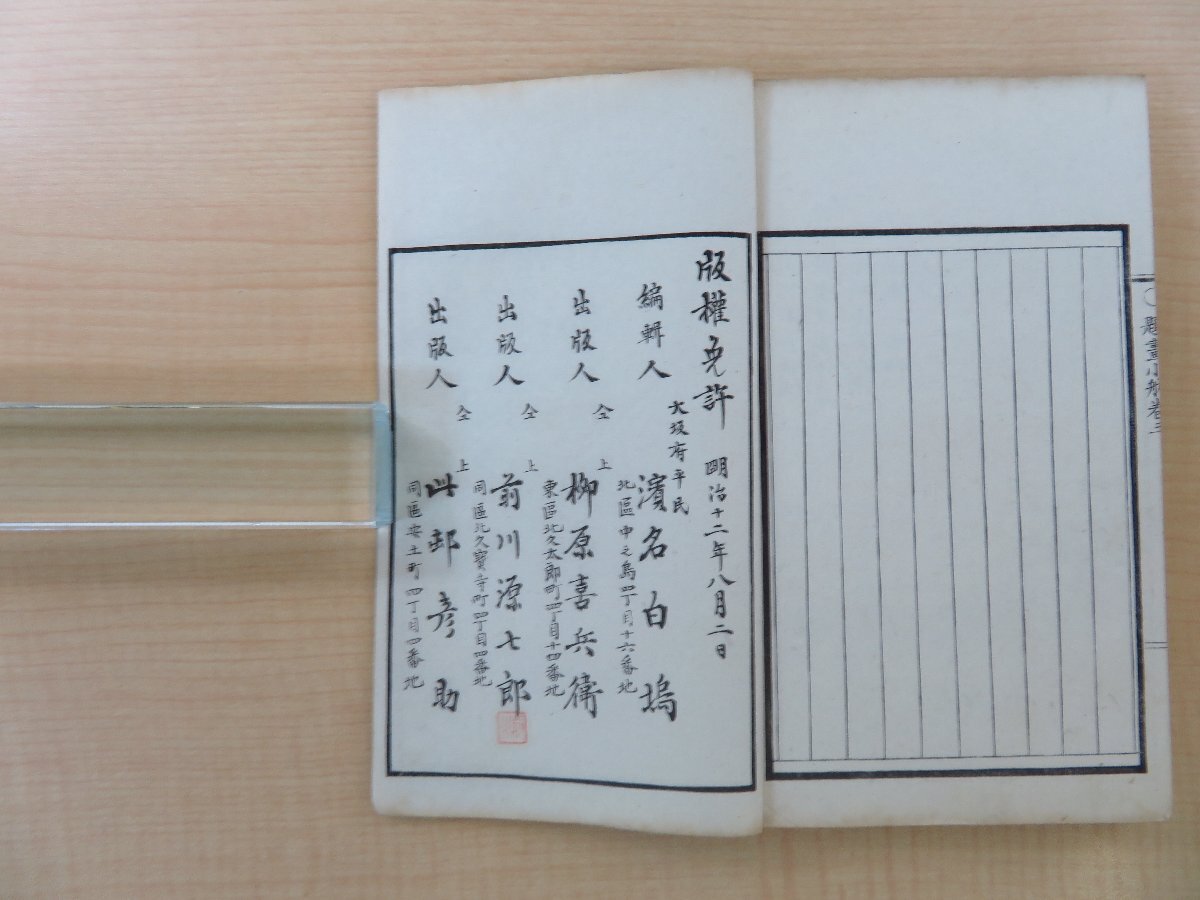 題畫小舩卷三
版權免許 明治十二年八月二日
大坂府平民
編輯人 濱名白塢
北區中之島四丁目十六番地
出版人 仝上 柳原喜兵衛
東區北久太郎町四丁目十四番地
出版人 仝上 前川源七郎
同區北久寶寺町四丁目四番地
出版人 仝上 此邨彦助
同區安土町四丁目四番地